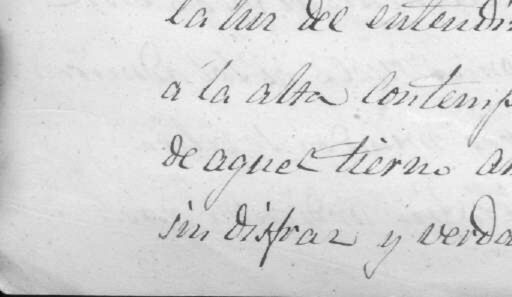 la luz del entendi
a la alta contemp
de aquel tierno a
sin disfraz y verda